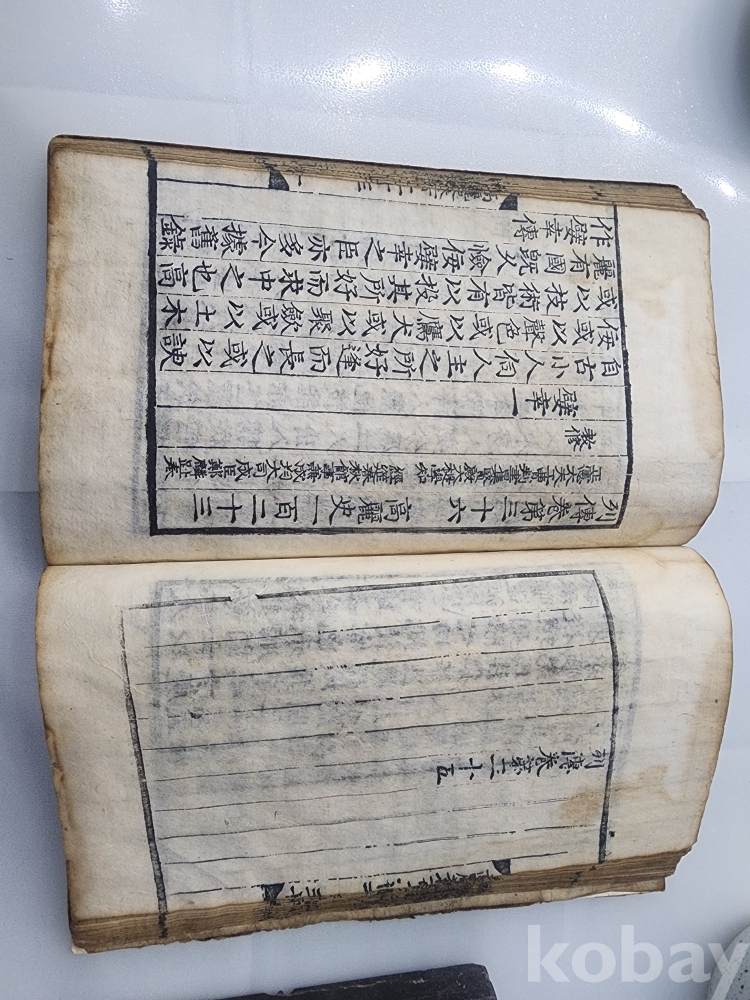 列傳卷第三十五
列傳卷第三十六 高麗史一百二十三
正憲大夫工曹判書集賢殿大提學知
經筵春秋館事兼成均大司成臣鄭麟趾奉
敎修
嬖幸一
自古小人伺人主之所好逢而長之或以諛
佞或以聲色或以鷹犬或以聚斂或以土木
或以技術皆有以投其所好而求中之也高
麗有國旣久憸佞嬖幸之臣亦多今據舊錄
作嬖幸傳
kobay